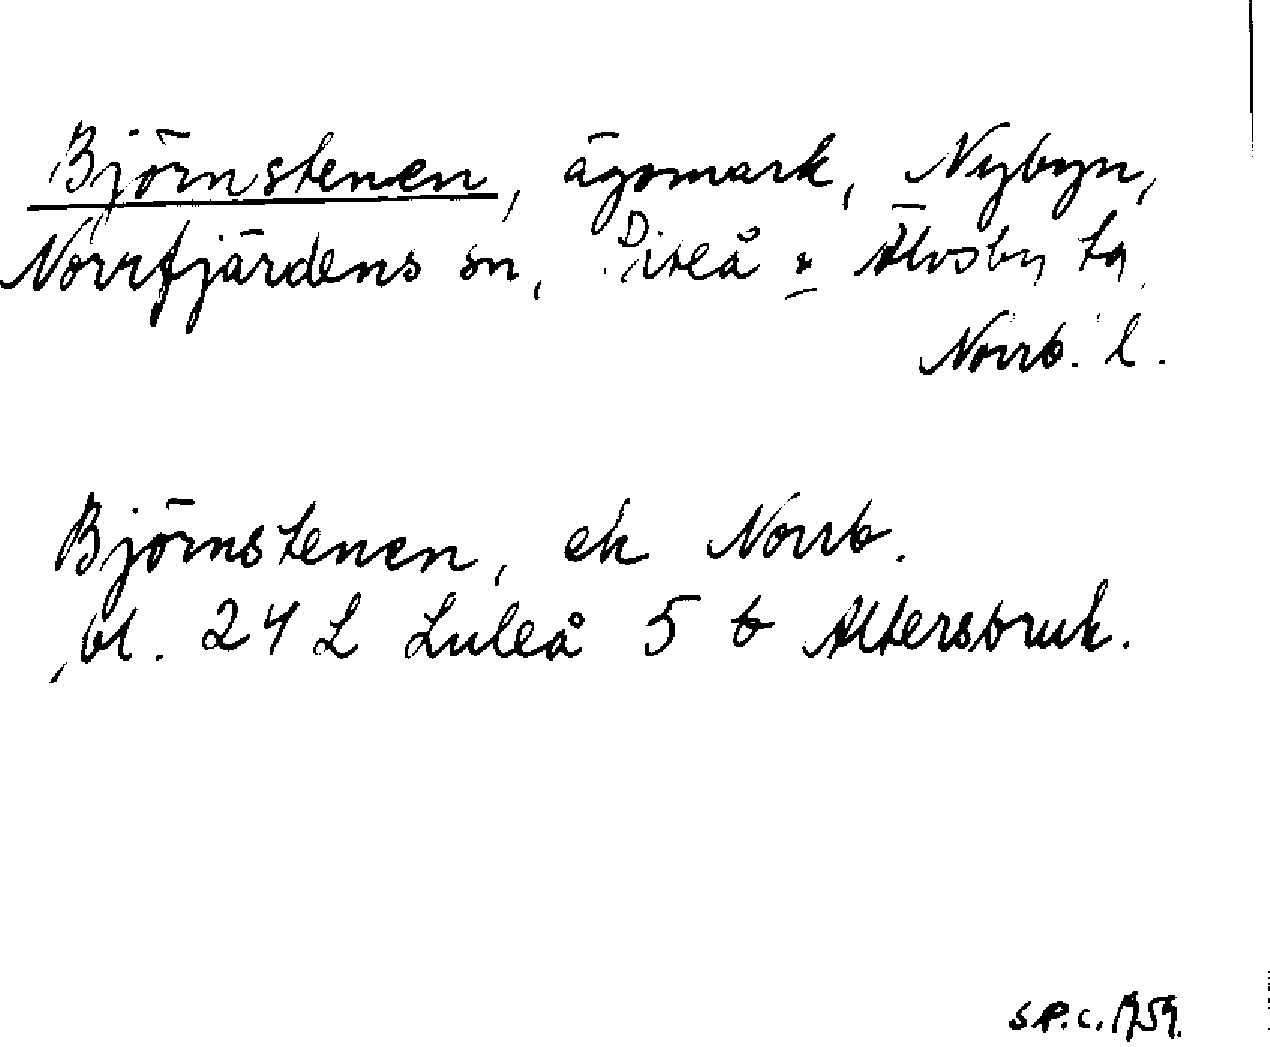 Björnstenen, ägomark, Nybyn,
Norrfjärdens sn, Piteå o Älvsby tg,
Norrb. l.
Björnstenen, ek Norrb.
bl. 24 L Luleå 5 b Altersbruk.
S.P.C. 1959.